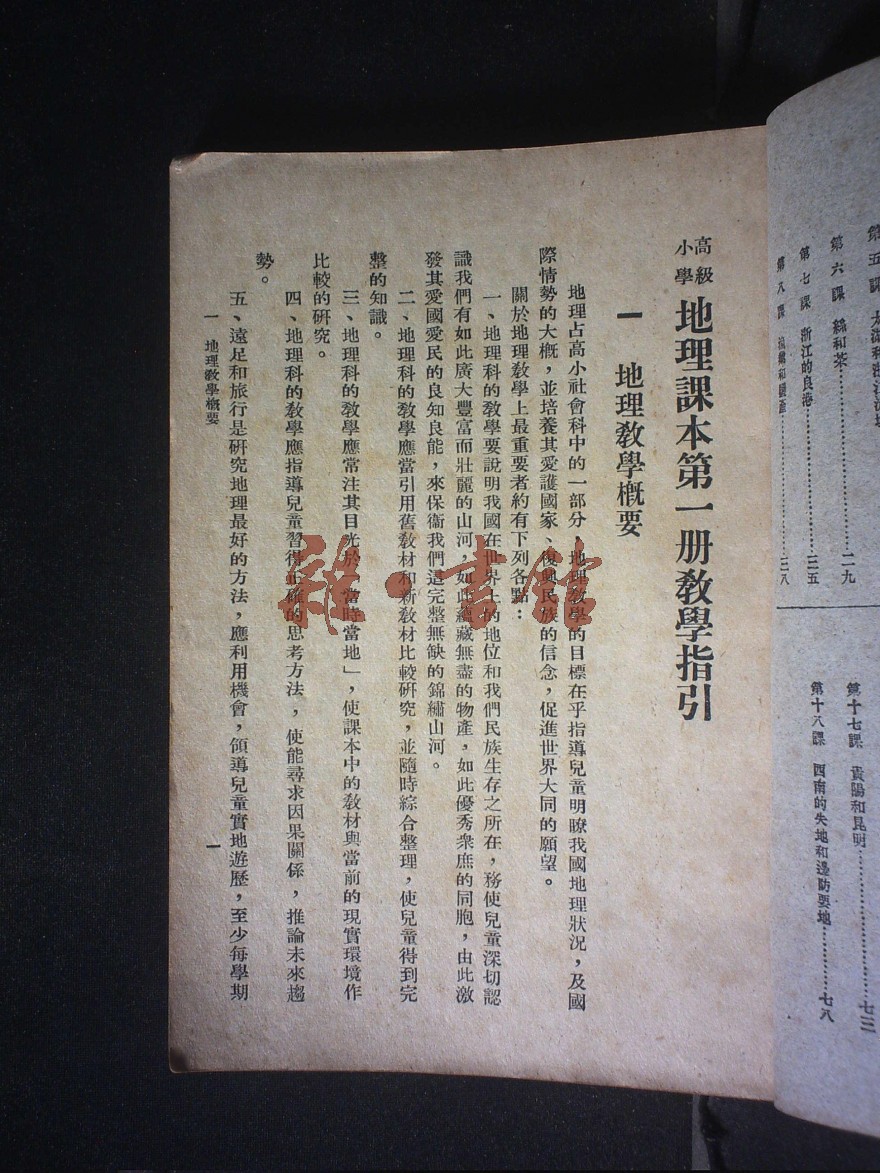 第五課
第六課 絲和茶…………二九
第七課 浙江的良港…………三五
第八課
第十七課 貴陽和昆明…………七三
第十八課 西南的失地和邊防要地…………七八
高級
小學
地理課本第一册教學指引
一 地理教學概要
地理占高小社會科中的一部分，地理教學的目標在乎指導兒童明瞭我國地理狀況，及國
際情勢的大概，並培養其愛護國家、復興民族的信念，促進世界大同的願望。
關於地理教學上最重要者約有下列各點：
一、地理科的教學要說明我國在世界上的地位和我們民族生存之所在，務使兒童深切認
識我們有如此廣大豐富而壯麗的山河，如此蘊藏無盡的物產，如此優秀衆庶的同胞，由此激
發其愛國愛民的良知良能，來保衞我們這完整無缺的錦繡山河。
二、地理科的教學應當引用舊教材和新教材比較研究，並隨時綜合整理，使兒童得到完
整的知識。
三、地理科的教學應常注其目光於「當時當地」，使課本中的教材與當前的現實環境作
比較的研究。
四、地理科的教學應指導兒童習得正確的思考方法，使能尋求因果關係，推論未來趨
勢。
五、遠足和旅行是研究地理最好的方法，應利用機會，領導兒童實地遊歷，至少每學期
一 地理教學概要
一
雅一書館